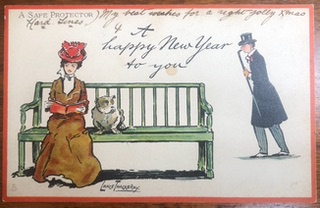 A SAFE PROTECTOR) My best wishes for a right jolly Xmas
Hard Lines)
& A
happy New Year
to you
Lance Thackeray